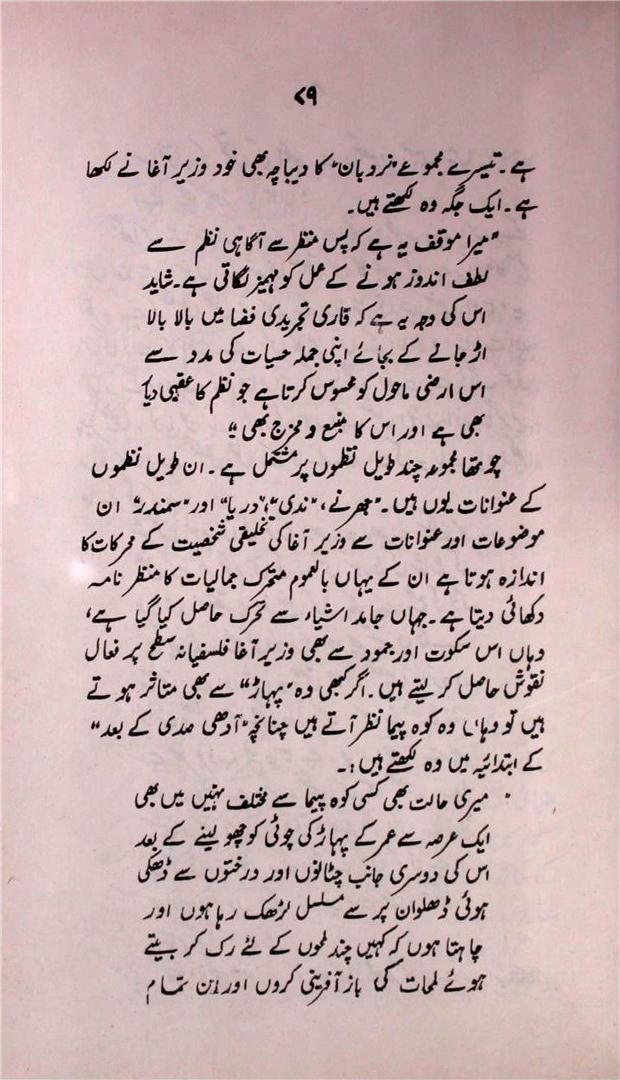 ۷۹
ہے۔ تیسرے مجموعے ”نردبان“ کا دیباچہ بھی خود وزیر آغا نے لکھا
ہے۔ ایک جگہ وہ لکھتے ہیں۔
”میرا موقف یہ ہے کہ پس منظر سے آگاہی نظم سے
لطف اندوز ہونے کے عمل کو مہمیز لگاتی ہے۔ شاید
اس کی وجہ یہ ہے کہ قاری تجریدی فضا میں بالا بالا
اڑ جانے کے بجائے اپنی جملہ حسیات کی مدد سے
اس ارضی ماحول کو محسوس کرتا ہے جو نظم کا عقبی دیار
بھی ہے اور اس کا منبع و مخرج بھی“
چوتھا مجموعہ چند طویل نظموں پر مشتمل ہے۔ ان طویل نظموں
کے عنوانات یوں ہیں۔ ”جھرنے“، ”ندی“، ”دریا“ اور ”سمندر“ ان
موضوعات اور عنوانات سے وزیر آغا کی تخلیقی شخصیت کے محرکات کا
اندازہ ہوتا ہے ان کے یہاں بالعموم متحرک جمالیات کا منظر نامہ
دکھائی دیتا ہے۔ جہاں جامد اشیاء سے تحرک حاصل کیا گیا ہے،
وہاں اس سکوت اور جمود سے بھی وزیر آغا فلسفیانہ سطح پر فعال
نقوش حاصل کر لیتے ہیں۔ اگر کبھی وہ ”پہاڑ“ سے بھی متاثر ہوتے
ہیں تو وہاں وہ کوہ پیما نظر آتے ہیں چنانچہ ”آدھی صدی کے بعد“
کے ابتدائیہ میں وہ لکھتے ہیں:۔
”میری حالت بھی کسی کوہ پیما سے مختلف نہیں میں بھی
ایک عرصہ سے عمر کے پہاڑ کی چوٹی کو چھو لینے کے بعد
اس کی دوسری جانب چٹانوں اور درختوں سے ڈھکی
ہوئی ڈھلوان پر سے مسلسل لڑھک رہا ہوں اور
چاہتا ہوں کہ کہیں چند لمحوں کے لئے رک کر بیتے
ہوئے لمحات کی باز آفرینی کروں اور ان تمام